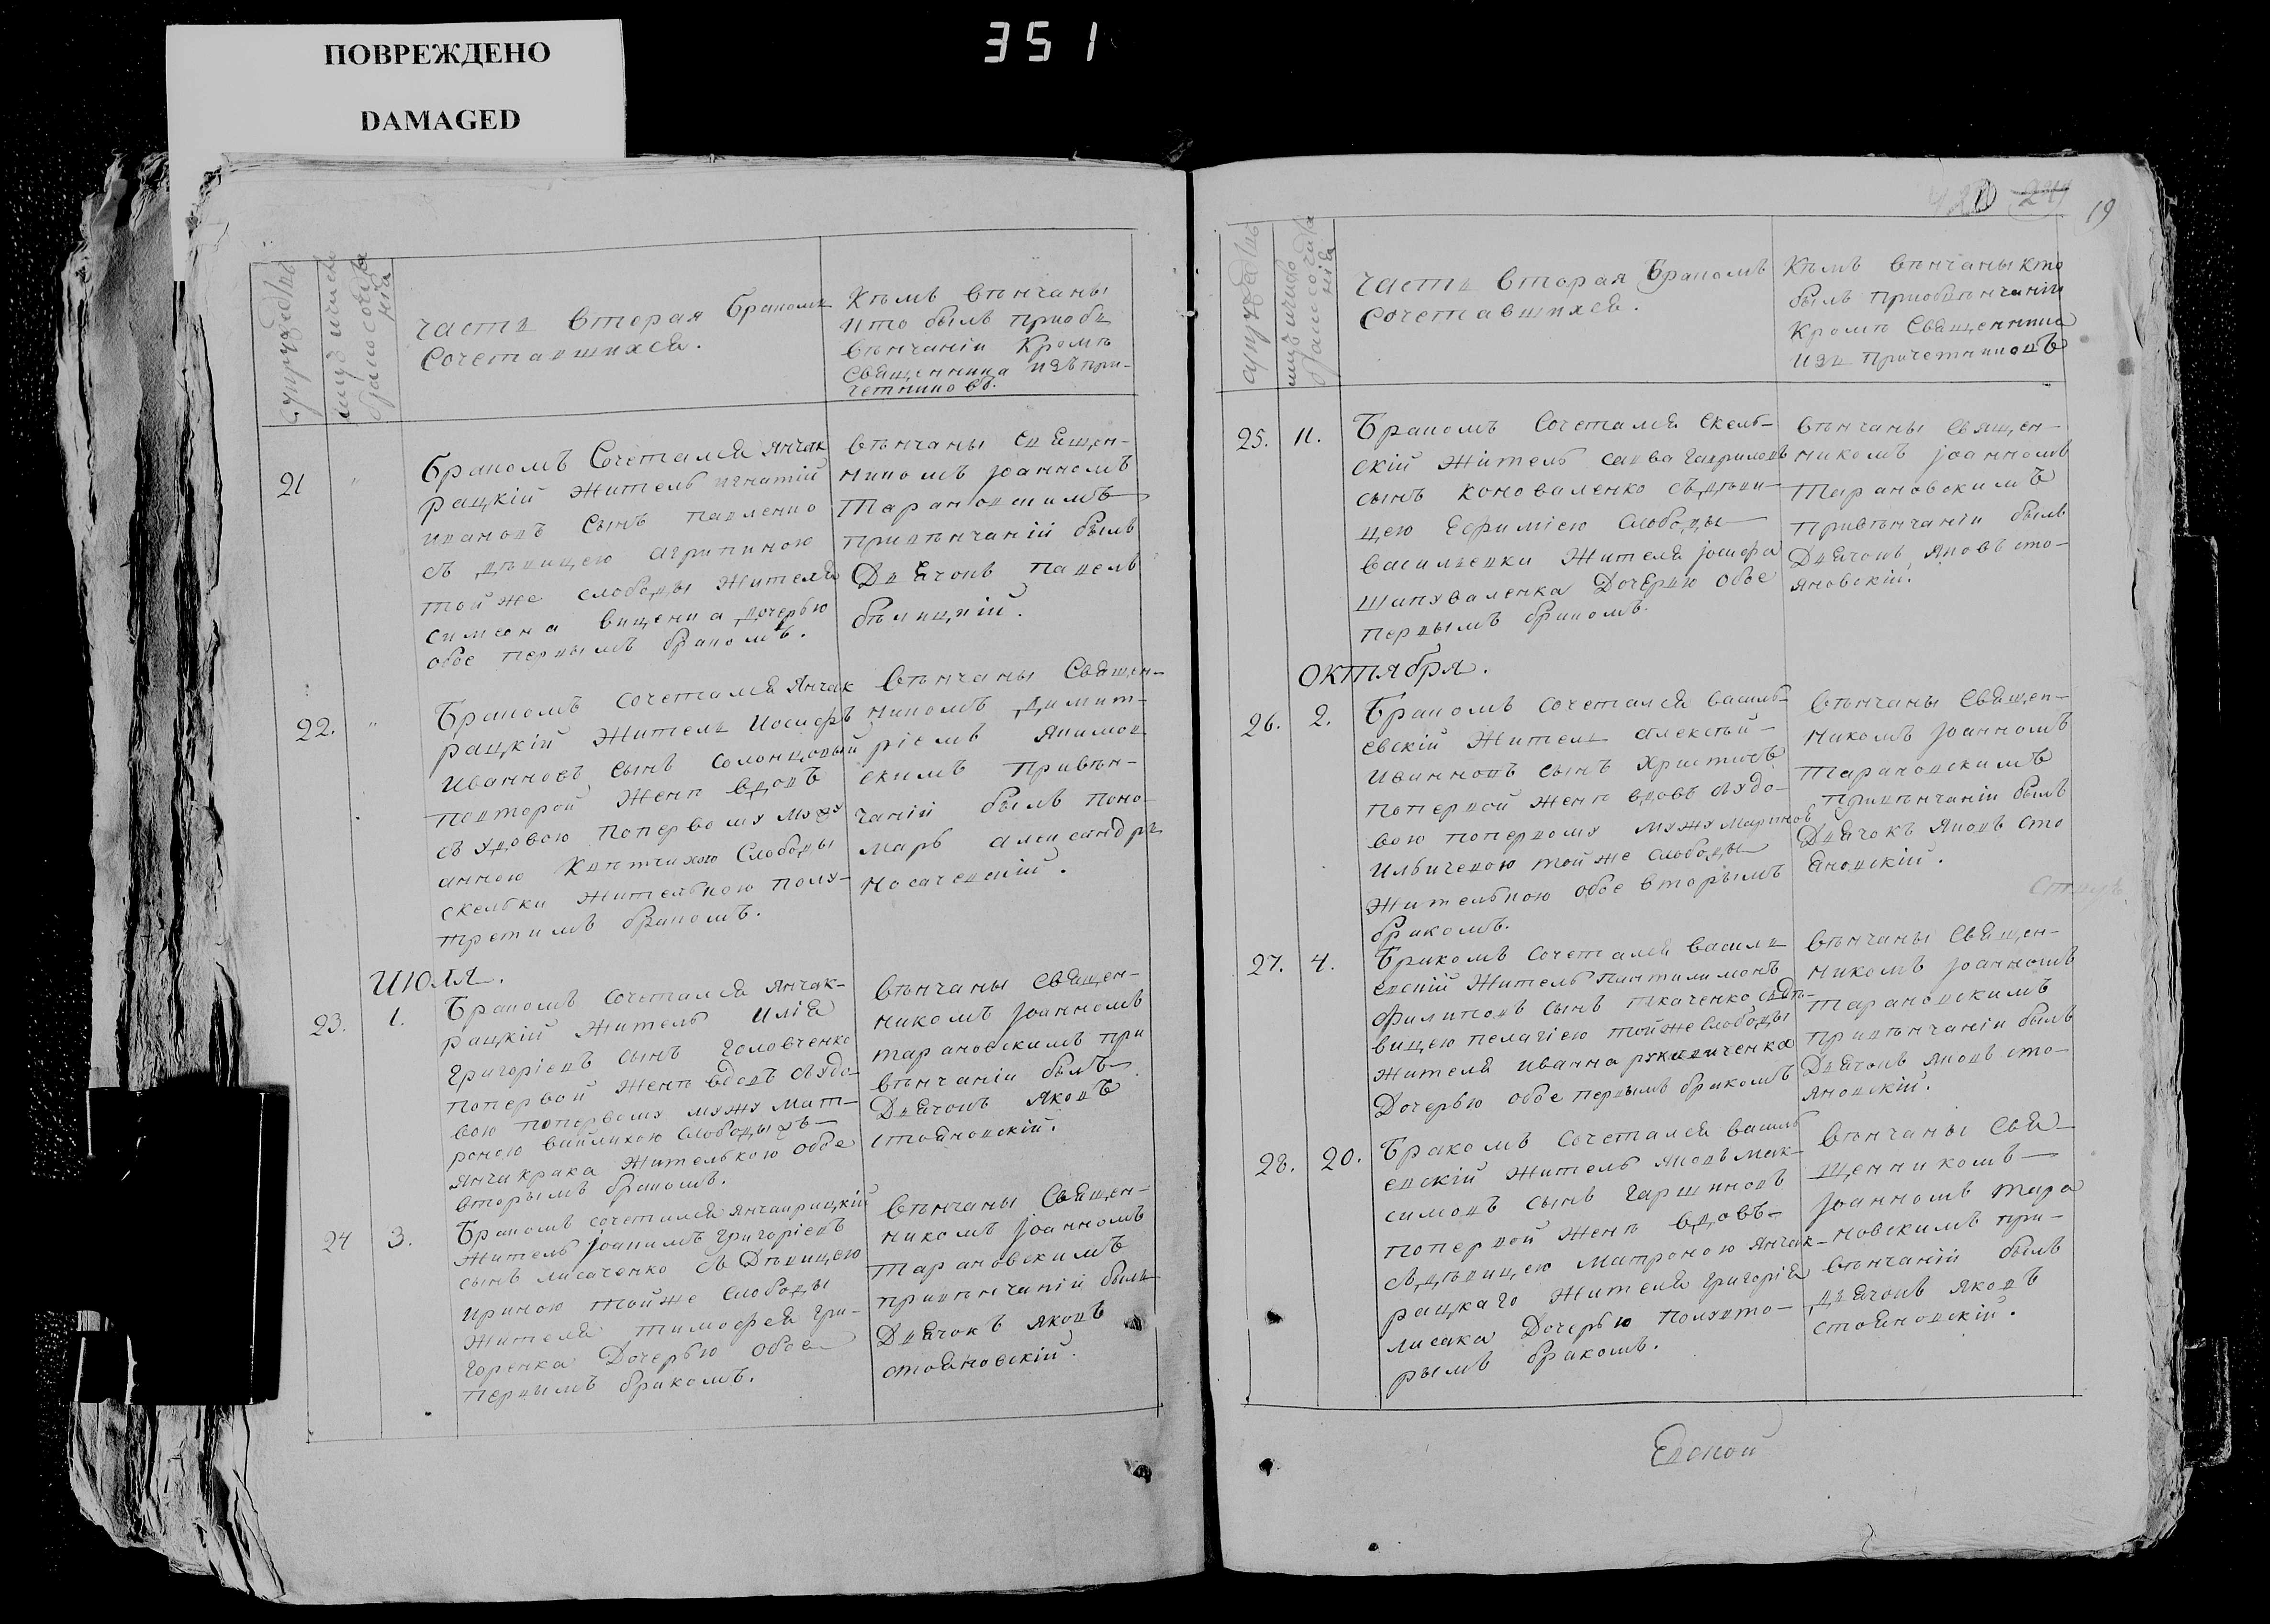 ПОВРЕЖДЕНО
DAMAGED
351
19
часть вторая Бракомъ
Сочетавшихся.
Кѣмъ вѣнчаны
и то былъ приобъ
вѣнчаніи Кромѣ
Священника изъ при-
четниковъ.
21
Бракомъ Сочетался Янчак
рацкій житель игнатій
ивановъ сынъ павленко
съ дѣвицею агрипиною
той же слободы жителя
симеона вищенка дочерью
обое первымъ бракомъ.
вѣнчаны священ-
никомъ Іоанномъ
Тарановскимъ
привѣнчаніи былъ
Дьячокъ павелъ
бѣлицкій.
22.
Бракомъ сочетался Янчак
рацкій житель Иосифъ
Иванновъ сынъ солонцовый
повторой женѣ вдовъ
съ удовою попервому мужу
анною Слободы
скельки жителькою полу-
третимъ бракомъ.
Вѣнчаны Священ-
никомъ Димит-
ріемъ Якимов
скимъ привѣн-
чаніи былъ поно-
марь Александръ
Носачевскій.
Июля.
23. 1.
Бракомъ сочетался Янчак-
рацкій житель Илія
Григоріевъ сынъ Головченко
попервой женѣ вдовъ съудо-
вою попервому мужу Мат-
роною слободы
Янчакрака жителькою обое
вторымъ бракомъ.
Вѣнчаны Священ-
никомъ Іоанномъ
тарановскимъ при
вѣнчаніи былъ
Дьячокъ Яковъ
стояновскій.
24 3.
Бракомъ сочетался янчакрацкій
житель Іоакимъ Григоріевъ
сынъ лисаченко съ Дѣвицею
ириною тойже слободы
жителя тимофея Гри-
горенка Дочерью обое
первымъ бракомъ.
Вѣнчаны Священ-
никомъ Іоанномъ
Тарановскимъ
привѣнчаніи былъ
Дьячокъ Яковъ
стояновскій.
часть вторая Бракомъ
Сочетавшихся.
Кѣмъ вѣнчаны кто
былъ приобвѣнчаніи
Кромѣ Священника
изъ причетниковъ
25. 11.
Бракомъ Сочетался Скель-
скій житель савва гаврилов
сынъ коноваленко съдѣви-
цею Ефиміею слободы
василевки жителя Іосифа
шаповаленка Дочерью обое
первымъ бракомъ.
вѣнчаны священ-
никомъ Іоанномъ
тарановскимъ
привѣнчаніи былъ
Дьячокъ Яковъ сто-
яновскій.
октября.
26. 2.
Бракомъ сочетался василь-
евскій житель алексѣй
Иванновъ сынъ Христичъ
попервой женѣ вдовъ съудо-
вою попервому мужу мариною
Ильичевою той же слободы
жителькою обое вторымъ
бракомъ.
Вѣнчаны Священ-
никомъ Іоанномъ
тарановскимъ
привѣнчаніи былъ
Дьячокъ Яковъ сто
яновскій.
27. 4.
Бракомъ сочетался василь
евскій житель пантилимонъ
филиповъ сынъ ткаченко съдѣ-
вицею пелагіею тойже слободы
жителя иванна
Дочерью обое первымъ бракомъ
вѣнчаны Священ-
никомъ Іоанномъ
тарановскимъ
привѣнчаніи былъ
Дьячокъ Яковъ сто-
яновскій.
28. 20.
Бракомъ Сочетался василь
евскій житель яковъ мак-
симовъ сынъ Гаршиновъ
попервой женѣ вдовъ-
съдѣвицею матроною Янчак-
рацкаго жителя григорія
лисака Дочерью полувто-
рымъ бракомъ.
вѣнчаны Свя-
щенникомъ
Іоанномъ тара
новскимъ при-
вѣнчаніи былъ
дьячокъ яковъ
стояновскій.